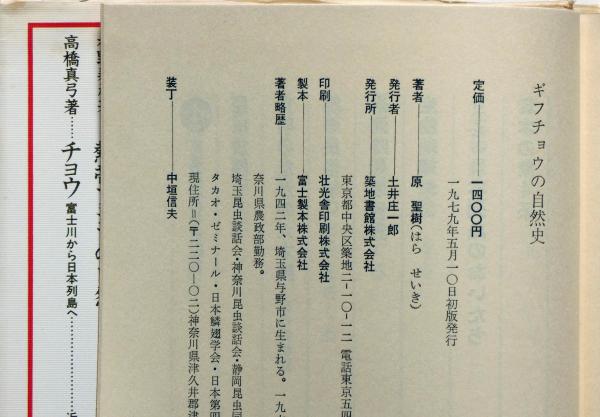 ギフチョウの自然史
定価——一四〇〇円
一九七九年五月一〇日初版発行
著者——原　聖樹(はら　せいき)
発行者——土井庄一郎
発行所——築地書館株式会社
東京都中央区築地二-一〇-一二　電話東京五四
印刷——壮光舎印刷株式会社
製本——富士製本株式会社
著者略歴——一九四二年、埼玉県与野市に生まれる。一九
奈川県農政部勤務。
埼玉昆虫談話会・神奈川昆虫談話会・静岡昆虫同
タカオ・ゼミナール・日本鱗翅学会・日本第四
現住所＝(〒二二〇—〇二)神奈川県津久井郡津
装丁——中垣信夫
高橋真弓著……チョウ　富士川から日本列島へ